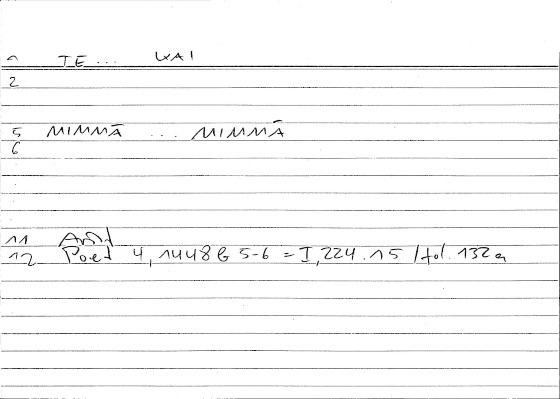 1 TE... KAI
2
5 MIMMĀ ... MIMMĀ
6
11 Arist
12 Poet 4, 1448b 5-6 = I, 224.15 / fol. 132a